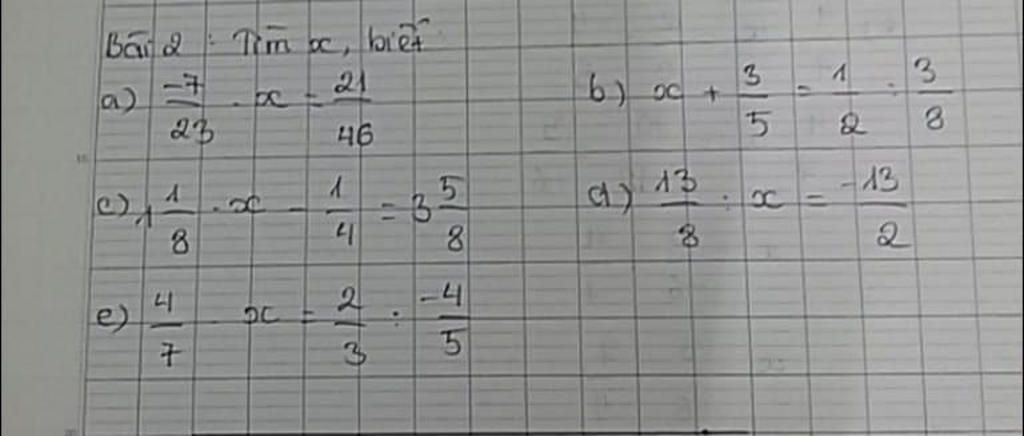 Bài 2 : Tìm x, biết
a) -7/23 . x = 21/46 b) x + 3/5 = 1/2 : 3/8
c) 1 1/8 . x - 1/4 = 3 5/8 d) 13/8 : x = -13/2
e) 4/7 x = 2/3 : -4/5